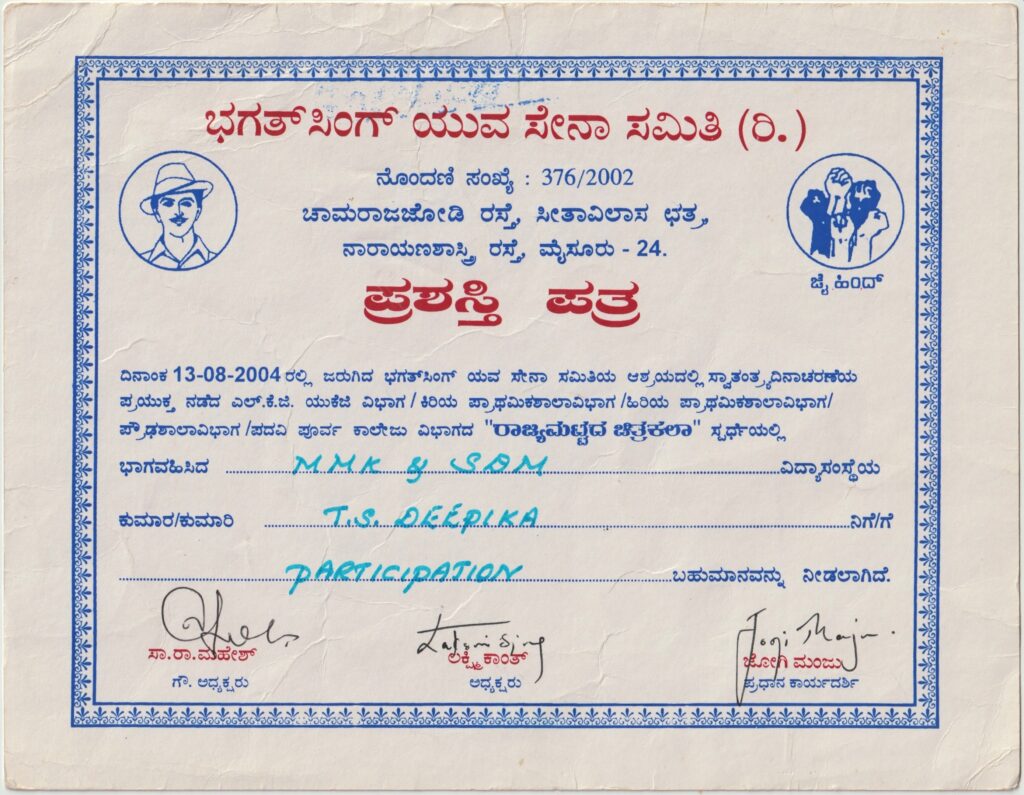 ಭಗತ್‌ಸಿಂಗ್ ಯುವ ಸೇನಾ ಸಮಿತಿ (ರಿ.)
ನೊಂದಣಿ ಸಂಖ್ಯೆ : 376/2002
ಚಾಮರಾಜಜೋಡಿ ರಸ್ತೆ, ಸೀತಾವಿಲಾಸ ಛತ್ರ,
ನಾರಾಯಣಶಾಸ್ತ್ರಿ ರಸ್ತೆ, ಮೈಸೂರು - 24.
ಜೈ ಹಿಂದ್
ಪ್ರಶಸ್ತಿ ಪತ್ರ
ದಿನಾಂಕ 13-08-2004 ರಲ್ಲಿ ಜರುಗಿದ ಭಗತ್‌ಸಿಂಗ್ ಯವ ಸೇನಾ ಸಮಿತಿಯ ಆಶ್ರಯದಲ್ಲಿ ಸ್ವಾತಂತ್ರ್ಯದಿನಾಚರಣೆಯ
ಪ್ರಯುಕ್ತ ನಡೆದ ಎಲ್.ಕೆ.ಜಿ. ಯುಕೆಜಿ ವಿಭಾಗ / ಕಿರಿಯ ಪ್ರಾಥಮಿಕಶಾಲಾವಿಭಾಗ /ಹಿರಿಯ ಪ್ರಾಥಮಿಕಶಾಲಾವಿಭಾಗ/
ಪ್ರೌಢಶಾಲಾವಿಭಾಗ /ಪದವಿ ಪೂರ್ವ ಕಾಲೇಜು ವಿಭಾಗದ "ರಾಜ್ಯಮಟ್ಟದ ಚಿತ್ರಕಲಾ" ಸ್ಪರ್ಧೆಯಲ್ಲಿ
ಭಾಗವಹಿಸಿದ MMK & SDM ವಿದ್ಯಾಸಂಸ್ಥೆಯ
ಕುಮಾರ/ಕುಮಾರಿ T.S. DEEPIKA ನಿಗೆ/ಗೆ
PARTICIPATION ಬಹುಮಾನವನ್ನು ನೀಡಲಾಗಿದೆ.
Jogi Manju.
ಸಾ.ರಾ.ಮಹೇಶ್ ಲಕ್ಷ್ಮಿಕಾಂತ್ ಜೋಗಿ ಮಂಜು
ಗೌ. ಅಧ್ಯಕ್ಷರು ಅಧ್ಯಕ್ಷರು ಪ್ರಧಾನ ಕಾರ್ಯದರ್ಶಿ